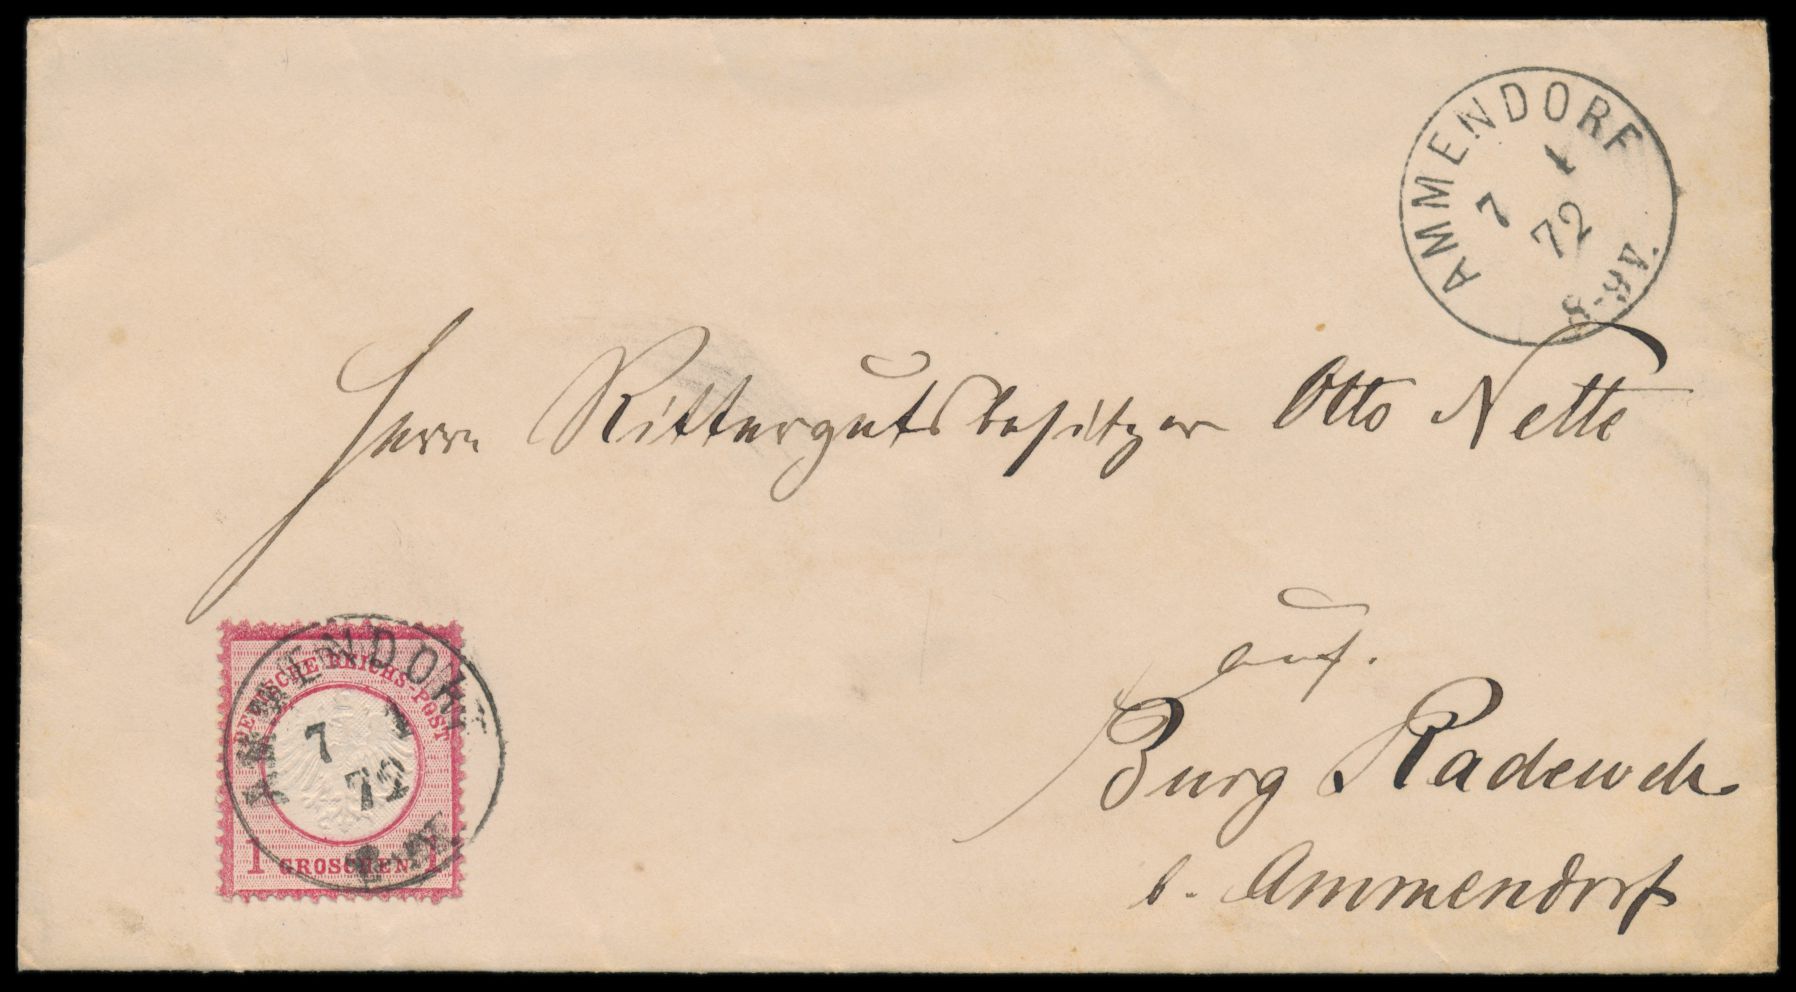 AMMENDORF
7 1
72
8-9 V.
Herrn Rittergutsbesitzer Otto Nette
auf.
Burg Radewell
b. Ammendorf
DEUTSCHE REICHS-POST
1 GROSCHEN 1
AMMENDORF
7
72